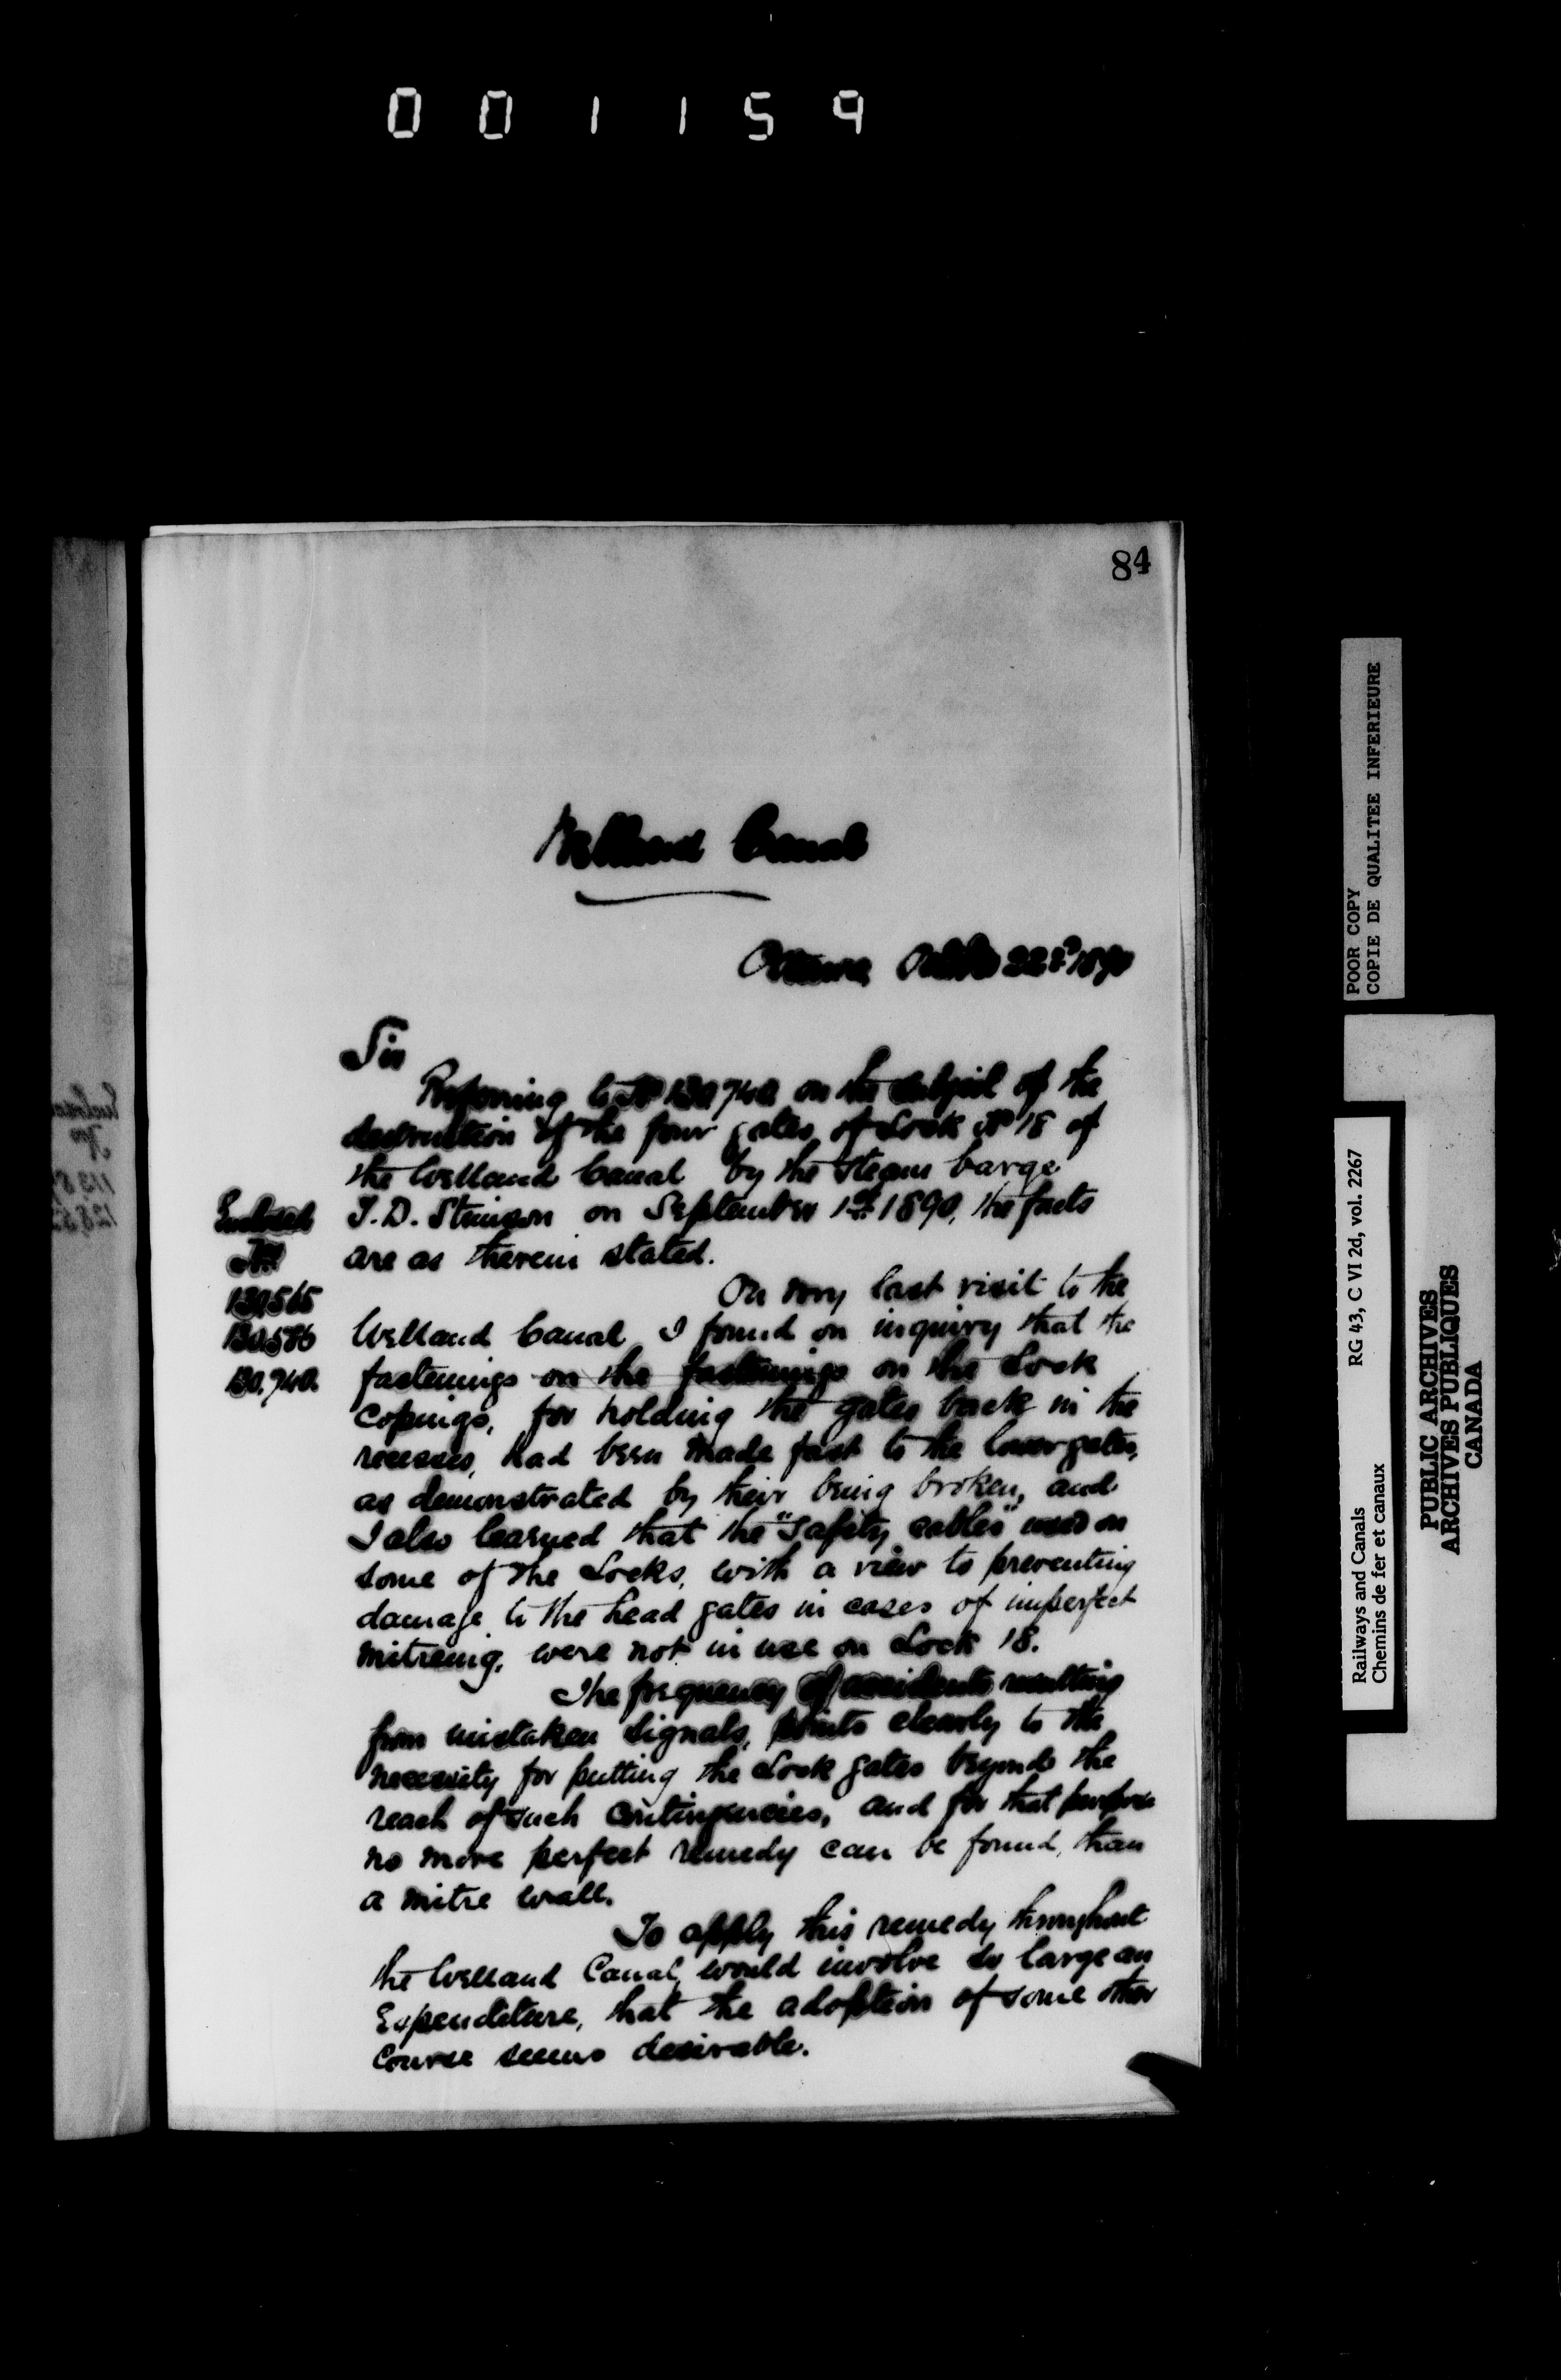 001159
84
Welland Canal
Ottawa Octbr 22nd 1890
Sir
Referring to No 130.740 on the subject of the
destruction of the four gates of Lock No 18 of
the Welland Canal by the steam barge
T. D. Stimson on September 1st 1890, the facts
are as therein stated.
Enclosed
Nos
130565
130586
130.740.
On my last visit to the
Welland Canal I found on inquiry that the
fastenings on the fastenings on the Lock
Copings, for holding the gates back in the
recesses, had been made fast to the lower gates,
as demonstrated by their being broken, and
I also learned that the "safety cables" used on
some of the Locks, with a view to preventing
damage to the head gates in cases of imperfect
mitreing, were not in use on Lock 18.
The frequency of accidents resulting
from mistaken signals, points clearly to the
necessity for putting the Lock gates beyond the
reach of such contingencies, and for that purpose
no more perfect remedy can be found, than
a mitre wall.
To apply this remedy throughout
the Welland Canal, would involve so large an
Expenditure, that the adoption of some other
Course seems desirable.
POOR COPY
COPIE DE QUALITEE INFERIEURE
Railways and Canals RG 43, C VI 2d, vol. 2267
Chemins de fer et canaux
PUBLIC ARCHIVES
ARCHIVES PUBLIQUES
CANADA